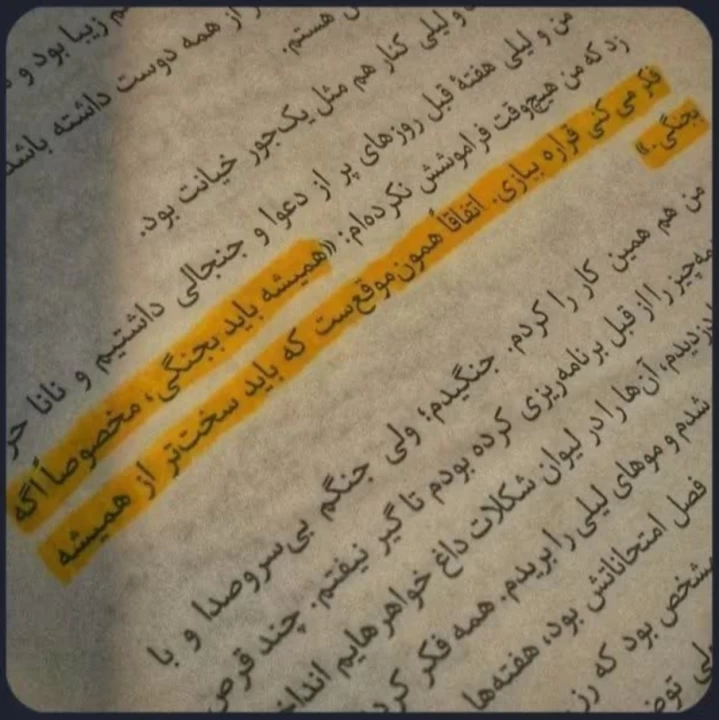 زیبا بود و
از همه دوست داشته باشد
هستم.
و لیلی کنار هم مثل یک‌جور خیانت بود.
من و لیلی هفتهٔ قبل روزهای پر از دعوا و جنجالی داشتیم و نانا
زد که من هیچ‌وقت فراموشش نکرده‌ام: «همیشه باید بجنگی، مخصوصاً اگه
فکر می کنی قراره ببازی. اتفاقاً همون موقع‌ست که باید سخت‌تر از همیشه
بجنگی.»
من هم همین کار را کردم. جنگیدم؛ ولی جنگم بی‌سروصدا و با
را از قبل برنامه‌ریزی کرده بودم تا گیر نیفتم. چند قرص
دزدیدم، آن‌ها را در لیوان شکلات داغ خواهرهایم
شدم و موهای لیلی را بریدم. همه فکر
فصل امتحاناتش بود، هفته‌ها
مشخص بود که